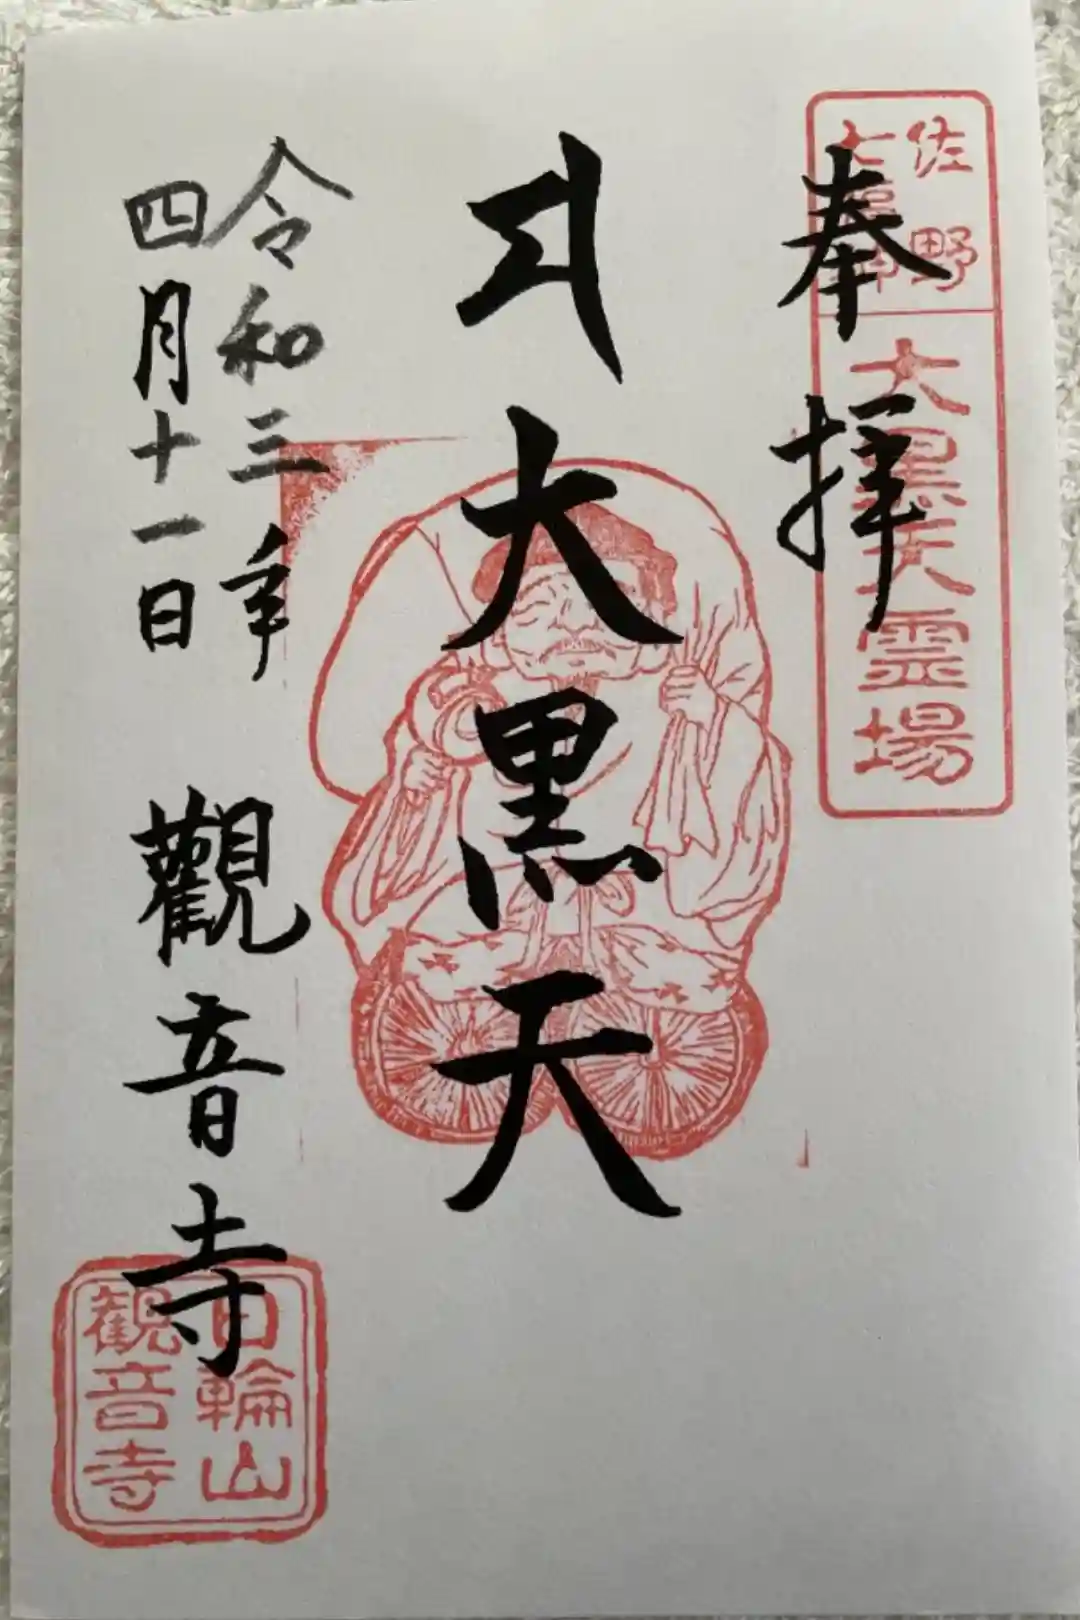 佐野
七福神
大黒天霊場
奉拝
大黒天
令和三年
四月十一日
觀音寺
日輪山
観音寺